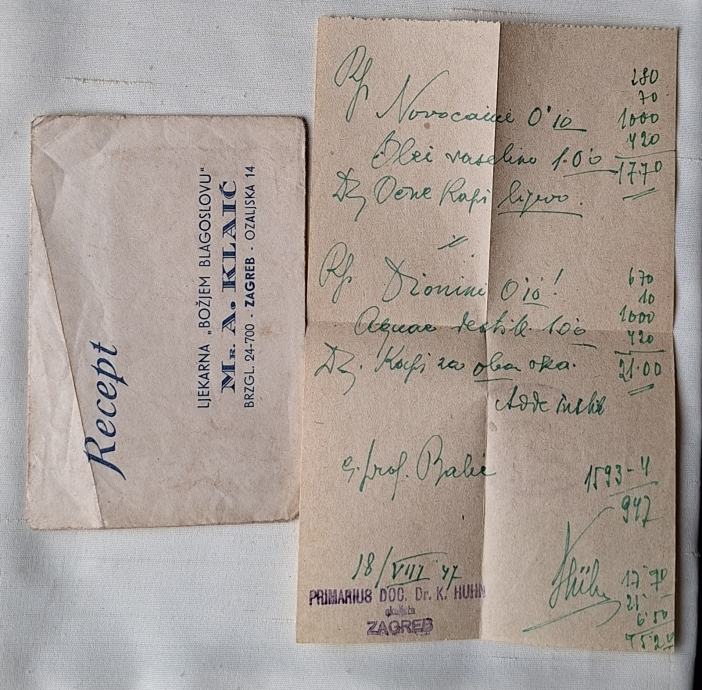 Recept
LJEKARNA „BOŽJEM BLAGOSLOVU"
Mr. A. KLAIĆ
BRZGL. 24-700 - ZAGREB - OZALJSKA 14
Rp
280
70
Novocaini 0'10
1000
420
Olei vaselino 1.00
1770
D. Ocne Kapi lijevo.
Rp. Dionini 0'10!
670
10
Aquae destill. 100
1000
420
D. Kapi za oba oka.
21.00
g. prof. Babić
1593-4
947
18/VIII 47
17.70
21.
6.50
PRIMARIUS DOC. Dr. K. HUHN
okulista
ZAGREB